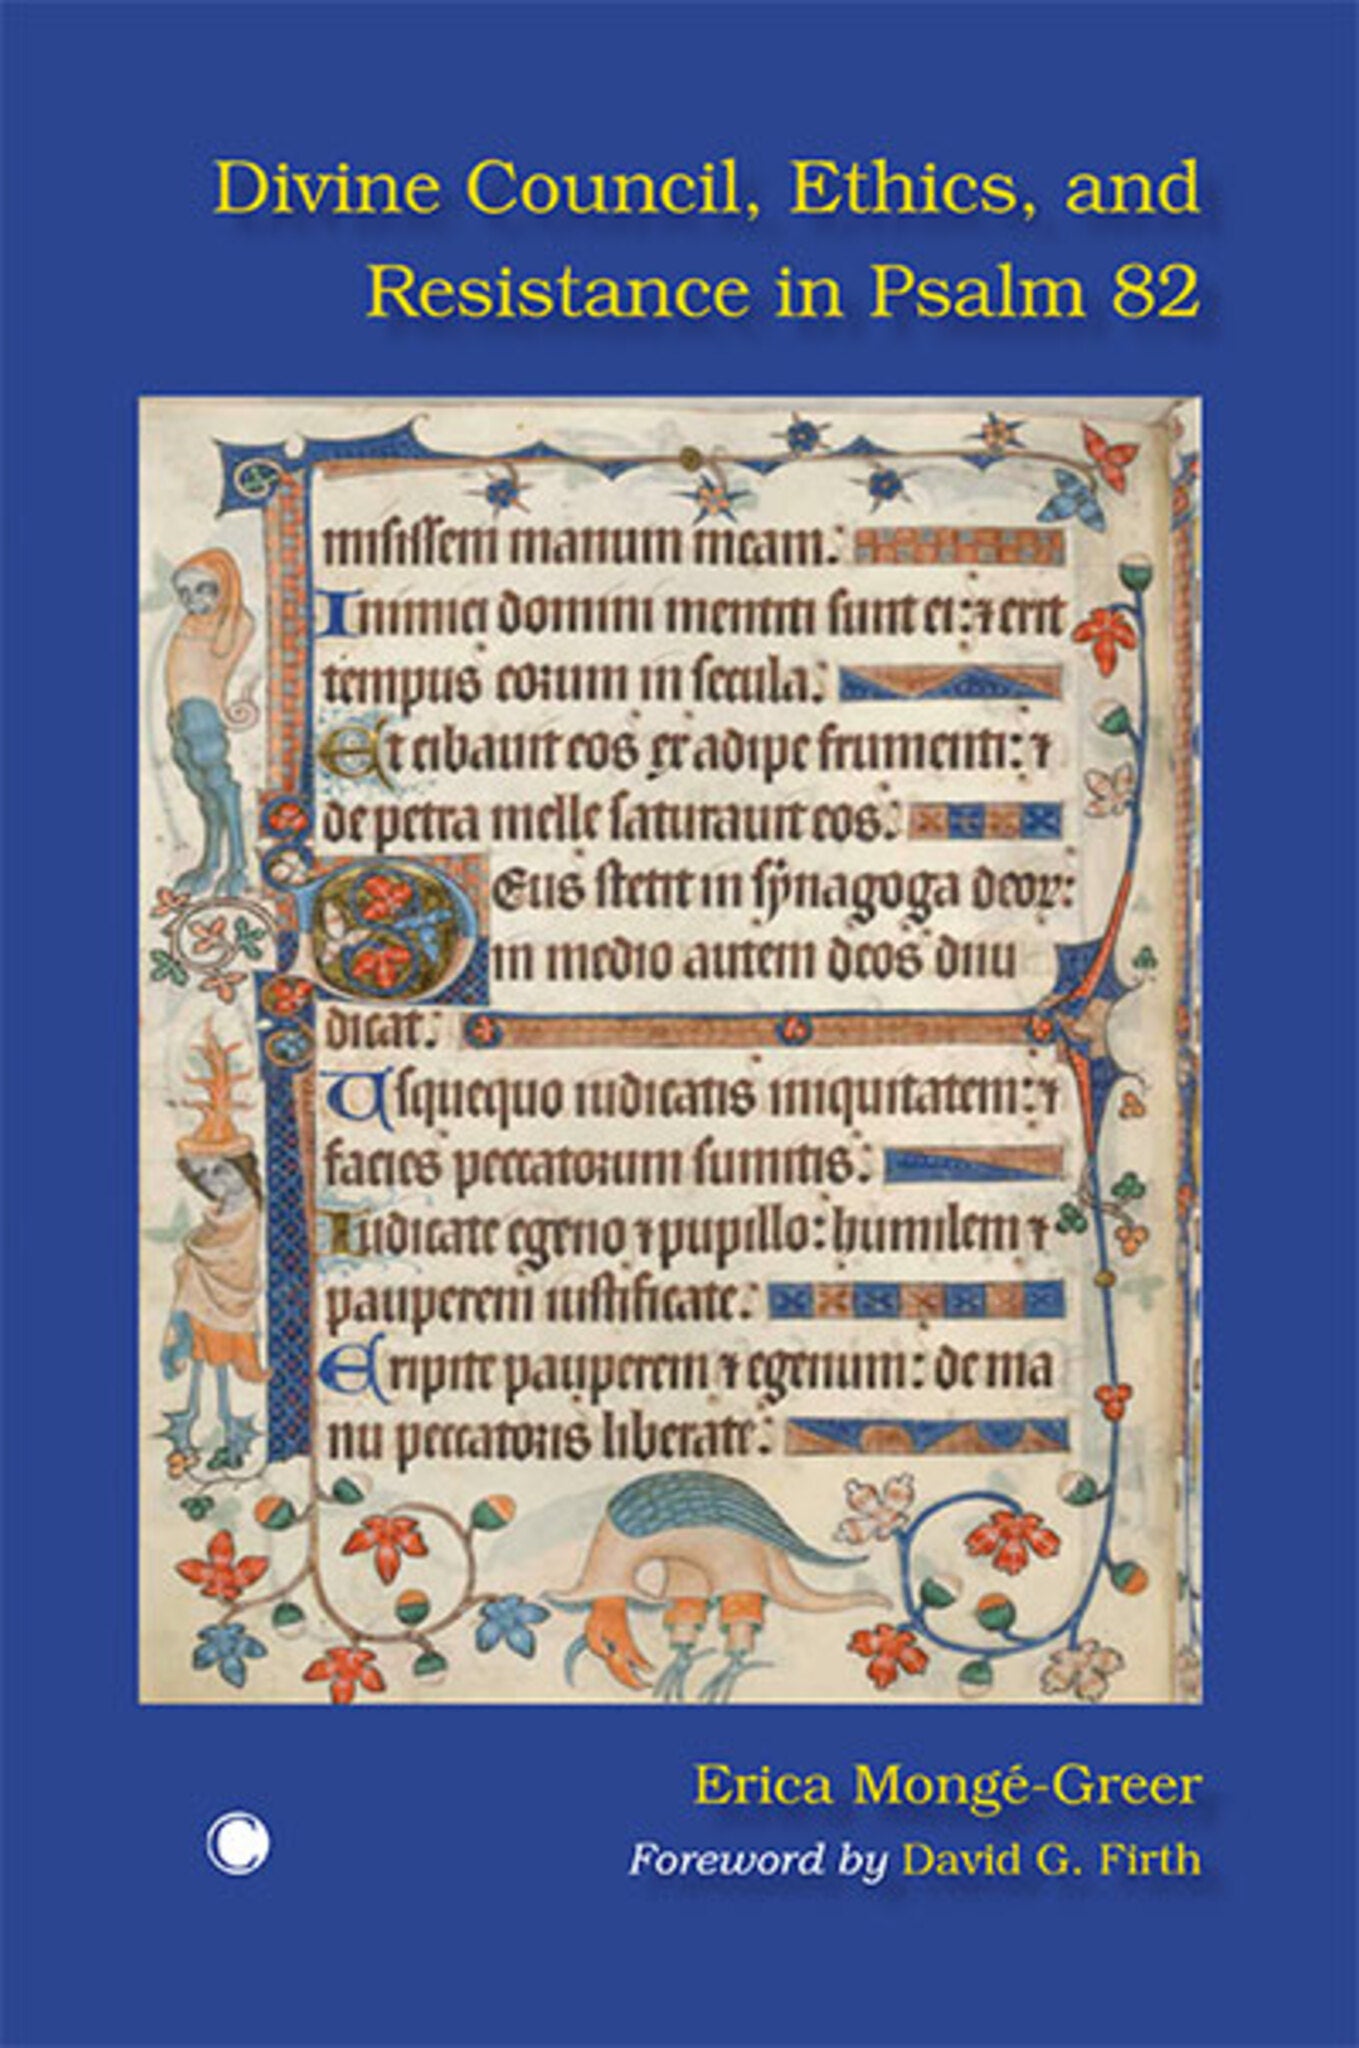 Divine Council, Ethics, and
Resistance in Psalm 82
misissem manum meam.
Inimici domini mentiti sunt ei: ⁊ erit
tempus eorum in secula.
Et cibauit eos ex adipe frumenti: ⁊
de petra melle saturauit eos.
Deus stetit in synagoga deoꝝ:
in medio autem deos diiu
dicat.
Usquequo iudicatis iniquitatem: ⁊
facies peccatorum sumitis.
Iudicate egeno ⁊ pupillo: humilem ⁊
pauperem iustificate.
Eripite pauperem ⁊ egenum: de ma
nu peccatoris liberate.
Erica Mongé-Greer
Foreword by David G. Firth